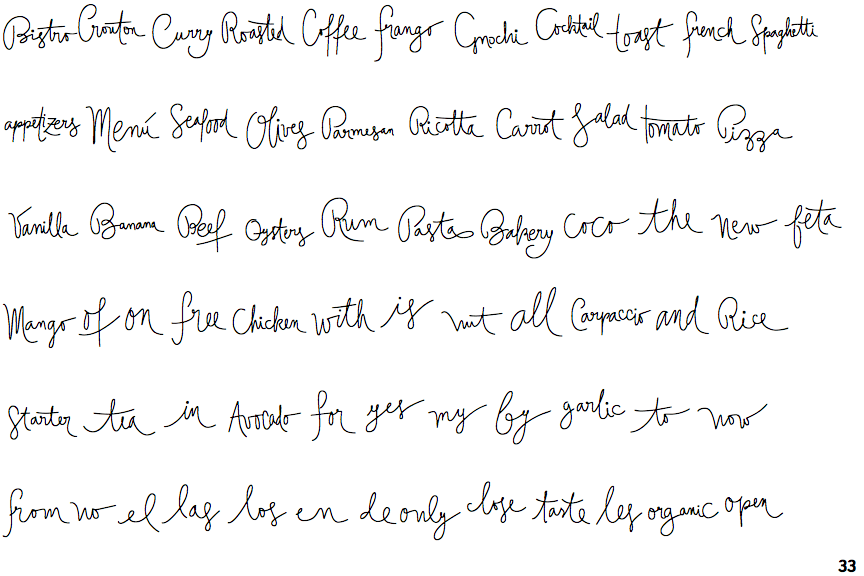 Bistro Crouton Curry Roasted Coffee frango Gnochi Cocktail toast french Spaghetti
appetizers Menú Seafood Olives Parmesan Ricotta Carrot Salad tomato Pizza
Vanilla Banana Beef Oysters Rum Pasta Bakery coco the new feta
Mango of on free Chicken with is nut all Carpaccio and Rice
Starter tea in Avocado for yes my by garlic to now
from no el las los en de only close taste les organic open
33